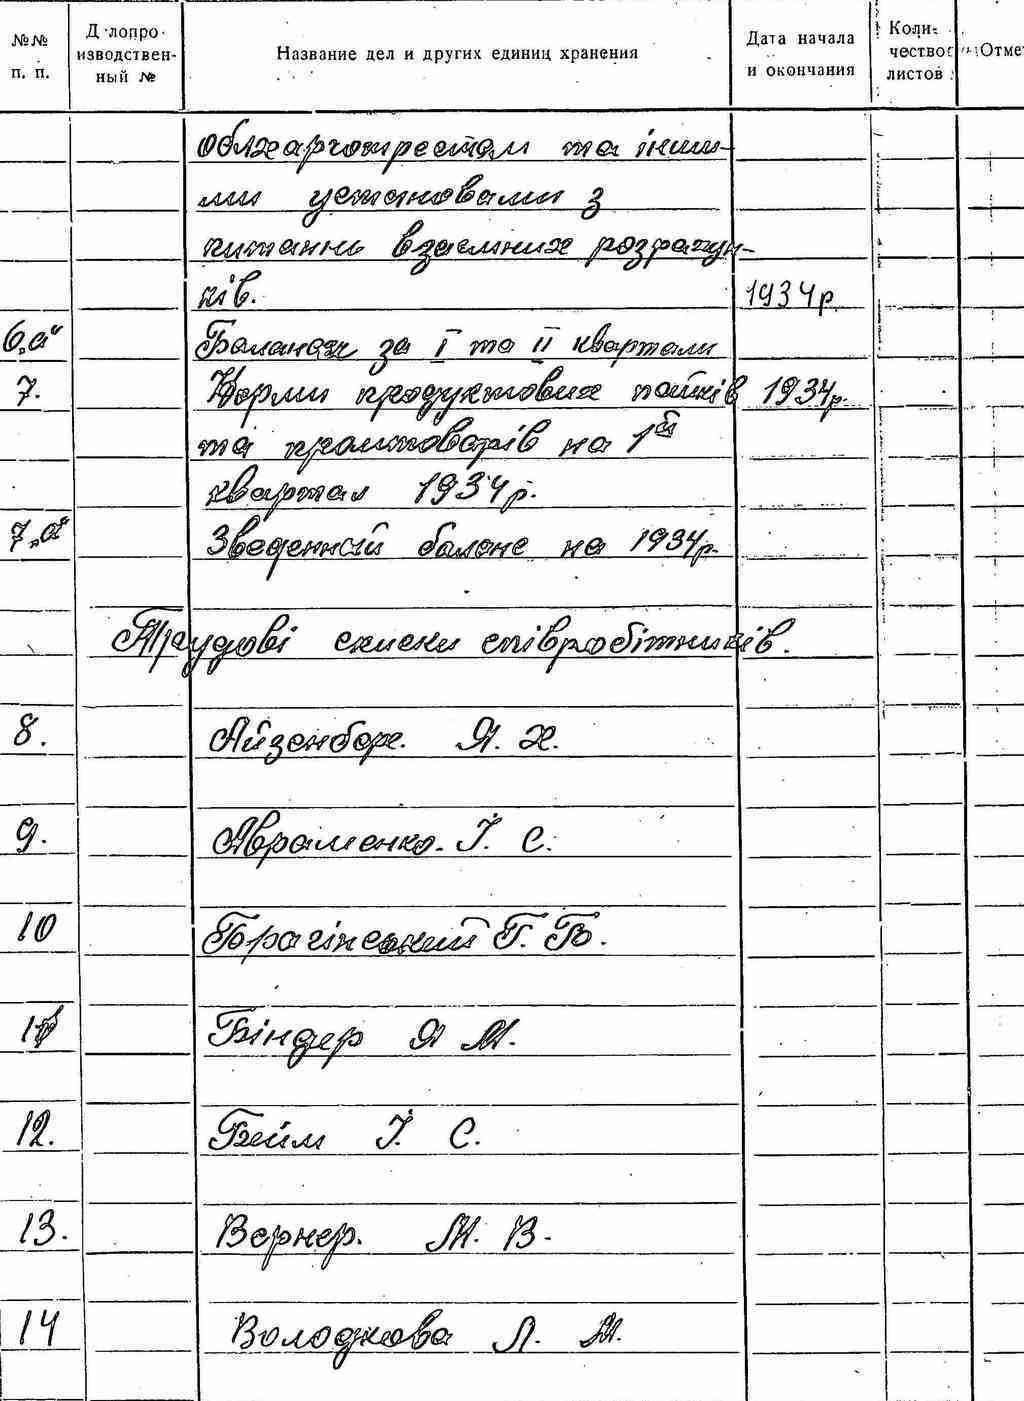 №№ п. п.
Д лопро-
изводствен-
ный №
Название дел и других единиц хранения
Дата начала
и окончания
Коли-
чество
листов
Отме
облхарчотрестом та інши-
ми установами з
питань взаємних розрахун-
ків. 1934р.
6„а" Баланси за І та ІІ квартали
7. Норми продуктових пайків 1934р.
та промтоварів на 1й
квартал 1934р.
7„а" Зведений баланс на 1934р.
Трудові списки співробітників.
8. Айзенберг. Я. Х.
9. Авраменко. І. С.
10 Г. В.
11 Біндер Я М.
12. Бейм І. С.
13. Вернер. М. В.
14 Л. М.